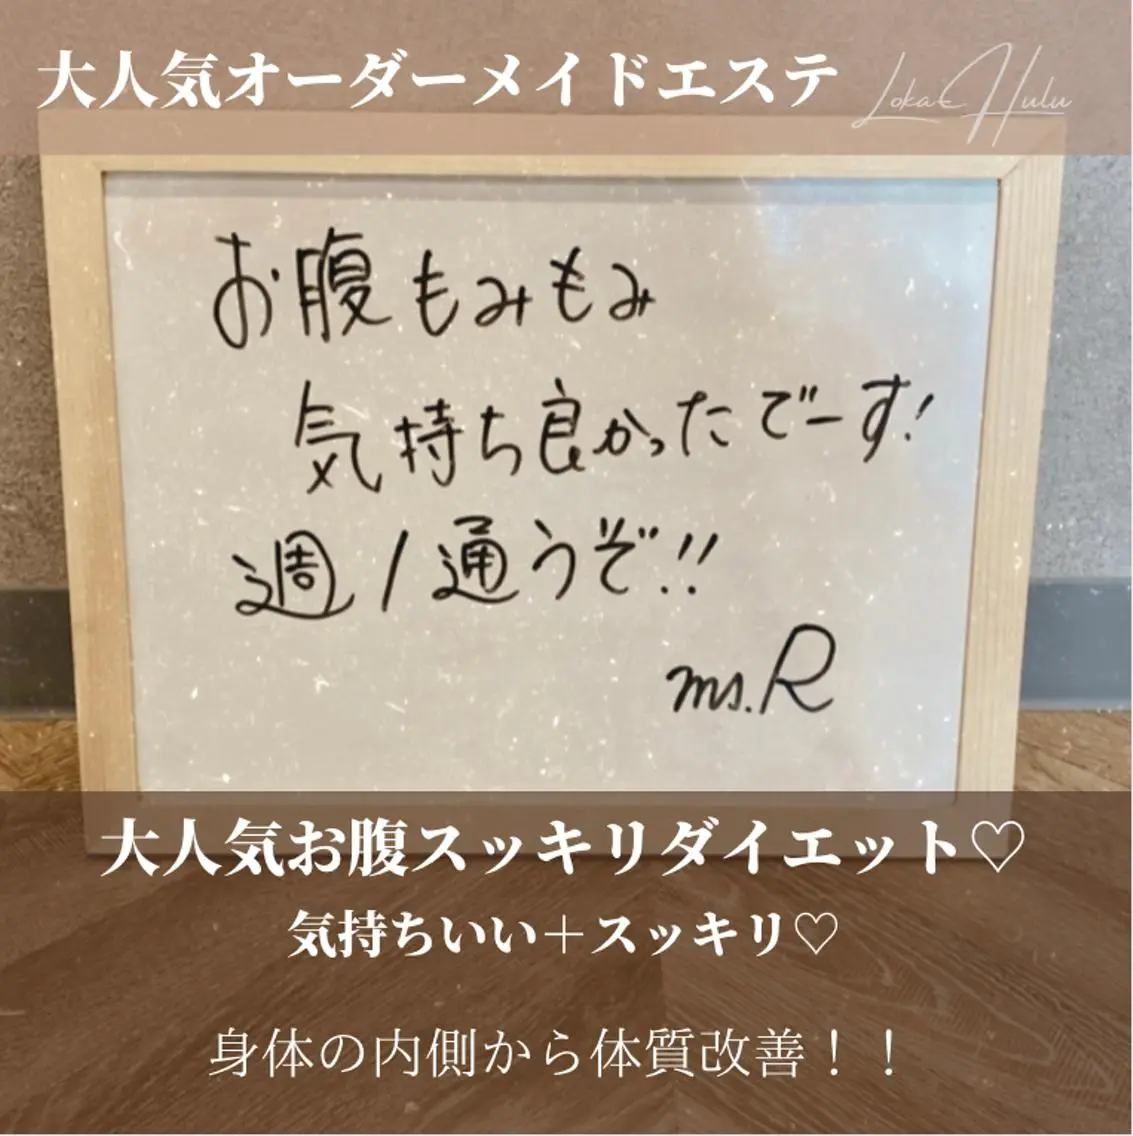 大人気オーダーメイドエステ
Loka Hulu
お腹もみもみ
気持ち良かったでーす!
週1通うぞ!!
ms.R
大人気お腹スッキリダイエット♡
気持ちいい＋スッキリ♡
身体の内側から体質改善！！